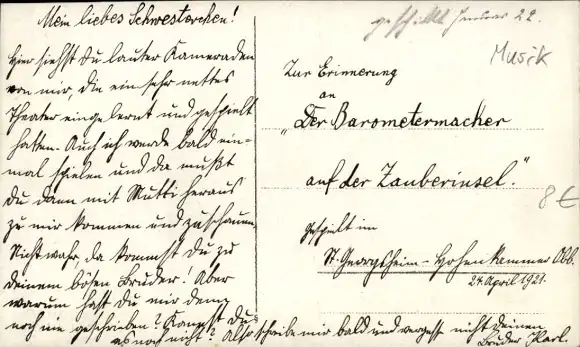 Mein liebes Schwesterchen!
Hier siehst du lauter Kameraden
von mir, die ein sehr nettes
Theater eingelernt und gespielt
hatten. Auch ich werde bald ein-
mal spielen und da mußt
du dann mit Mutti heraus
zu mir kommen und zuschauen.
Nicht wahr, da kommst du zu
deinem bösen Bruder! Aber
warum hast du mir denn
noch nie geschrieben? Kannst du
es noch nicht? Also schreibe mir bald und vergesst nicht deinen
Bruder Karl.
geschickt Januar 22.
Musik
Zur Erinnerung
an
"Der Barometermacher
auf der Zauberinsel."
8 €
Gespielt im
St. Georgsheim - Hohenkammer Obb.
24. April 1921.